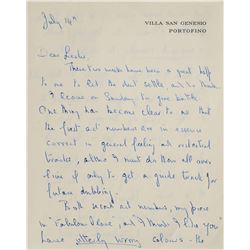 July 14th
VILLA SAN GENESIO
PORTOFINO
Dear Leslie,
These two weeks have been a great help
to me to let the dust settle and to think.
I leave on Sunday to give battle.
One thing has become clear to me that
the first act numbers are in essence
correct in general feeling and orchestral
tracks, altho' I must do them all over
if only to get a guide track for
future dubbing.
Both second act numbers, my piece
in "Fabulous Place", and "I think I like you"
have utterly wrong colours - the